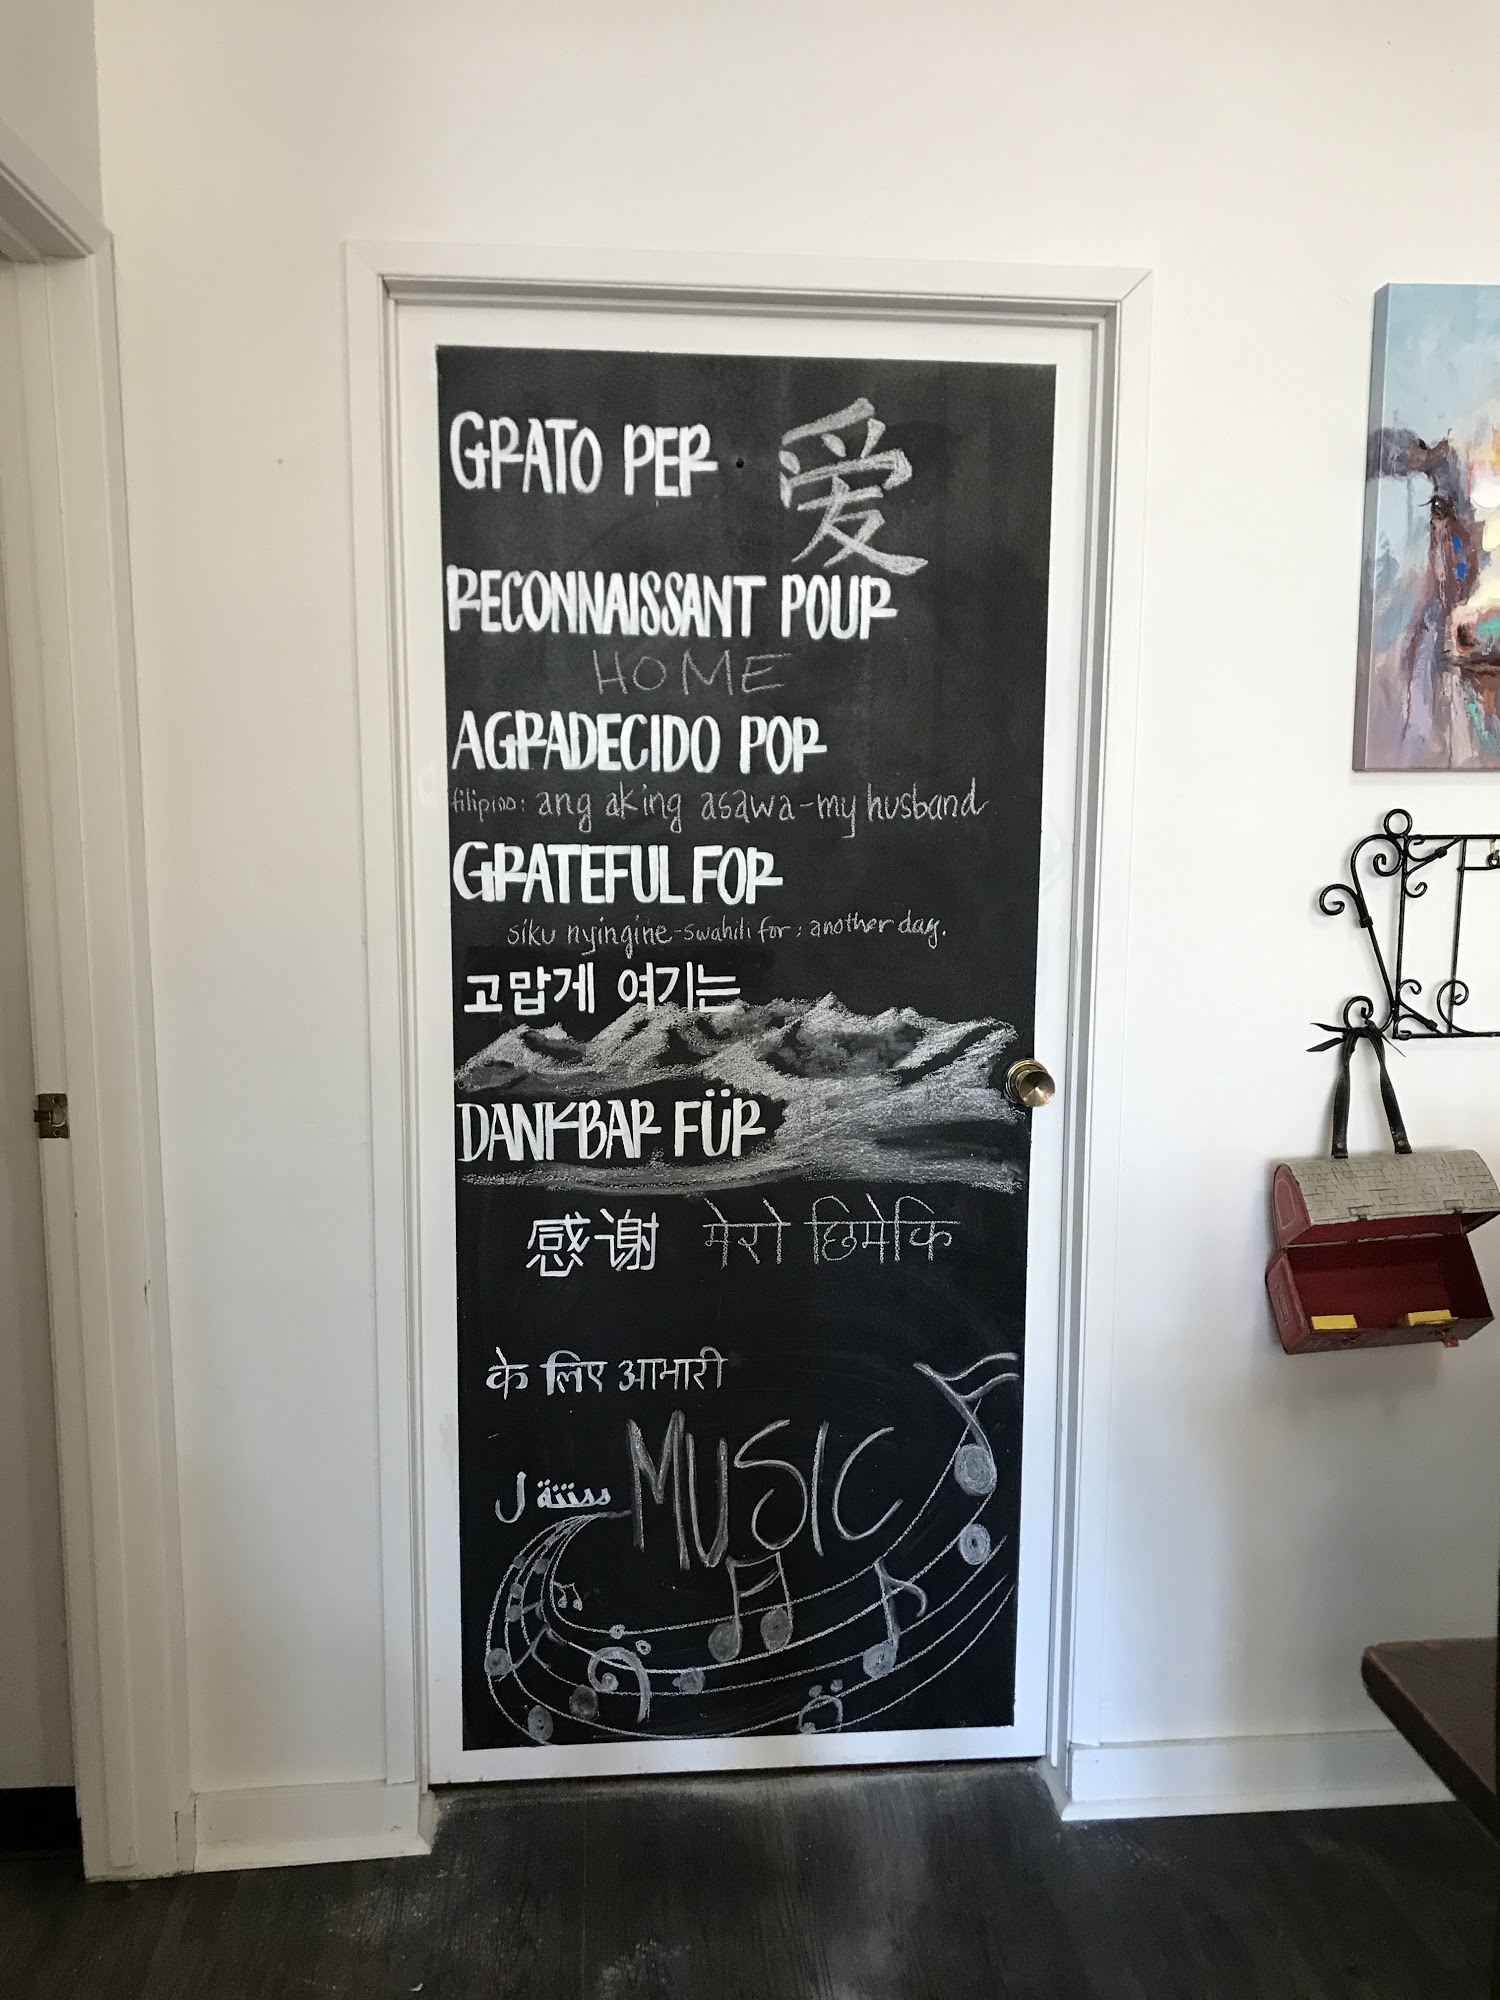 GRATO PER 爱
RECONNAISSANT POUR
HOME
AGRADECIDO POR
filipino: ang aking asawa-my husband
GRATEFUL FOR
siku nyingine-swahili for: another day.
고맙게 여기는
DANKBAR FÜR
感谢 मेरो छिमेकि
के लिए आभारी
MUSIC